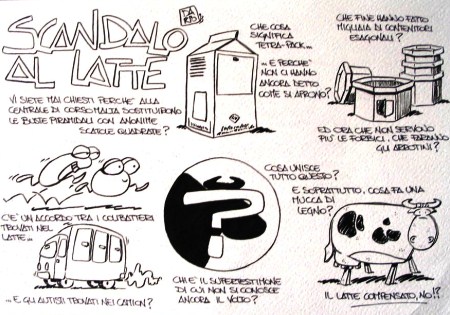 SCANDALO
AL LATTE
VI SIETE MAI CHIESTI PERCHE' ALLA
CENTRALE DI CORSO MALTA SOSTITUIRONO
LE BUSTE PIRAMIDALI CON ANONIME
SCATOLE QUADRATE?
CHE COSA
SIGNIFICA
TETRA-PACK...
... E PERCHE'
NON CI HANNO
ANCORA DETTO
COME SI APRONO?
CHE FINE HANNO FATTO
MIGLIAIA DI CONTENITORI
ESAGONALI?
ED ORA CHE NON SERVONO
PIU' LE FORBICI, CHE FARANNO
GLI ARROTINI?
C'E' UN ACCORDO TRA I COLIBATTERI
TROVATI NEL
LATTE...
... E GLI AUTISTI TROVATI NEI CAMION?
COSA UNISCE
TUTTO QUESTO?
CHI E' IL SUPERTESTIMONE
DI CUI NON SI CONOSCE
ANCORA IL VOLTO?
E SOPRATTUTTO, COSA FA UNA
MUCCA DI
LEGNO?
IL LATTE COMPENSATO, NO!?